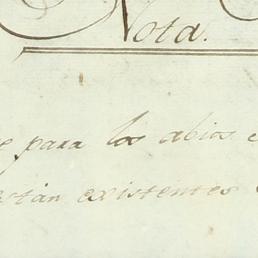 Nota.
para los abios
están existentes